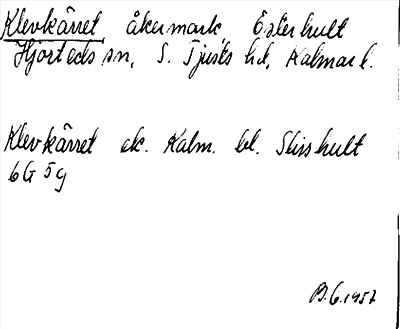 Klevkärret åkermark, Österhult
Hjorteds sn, S. Tjusts hd, Kalmar l.
Klevkärret ek. Kalm. bl. Slisshult
6G 5g
B.G. 1957